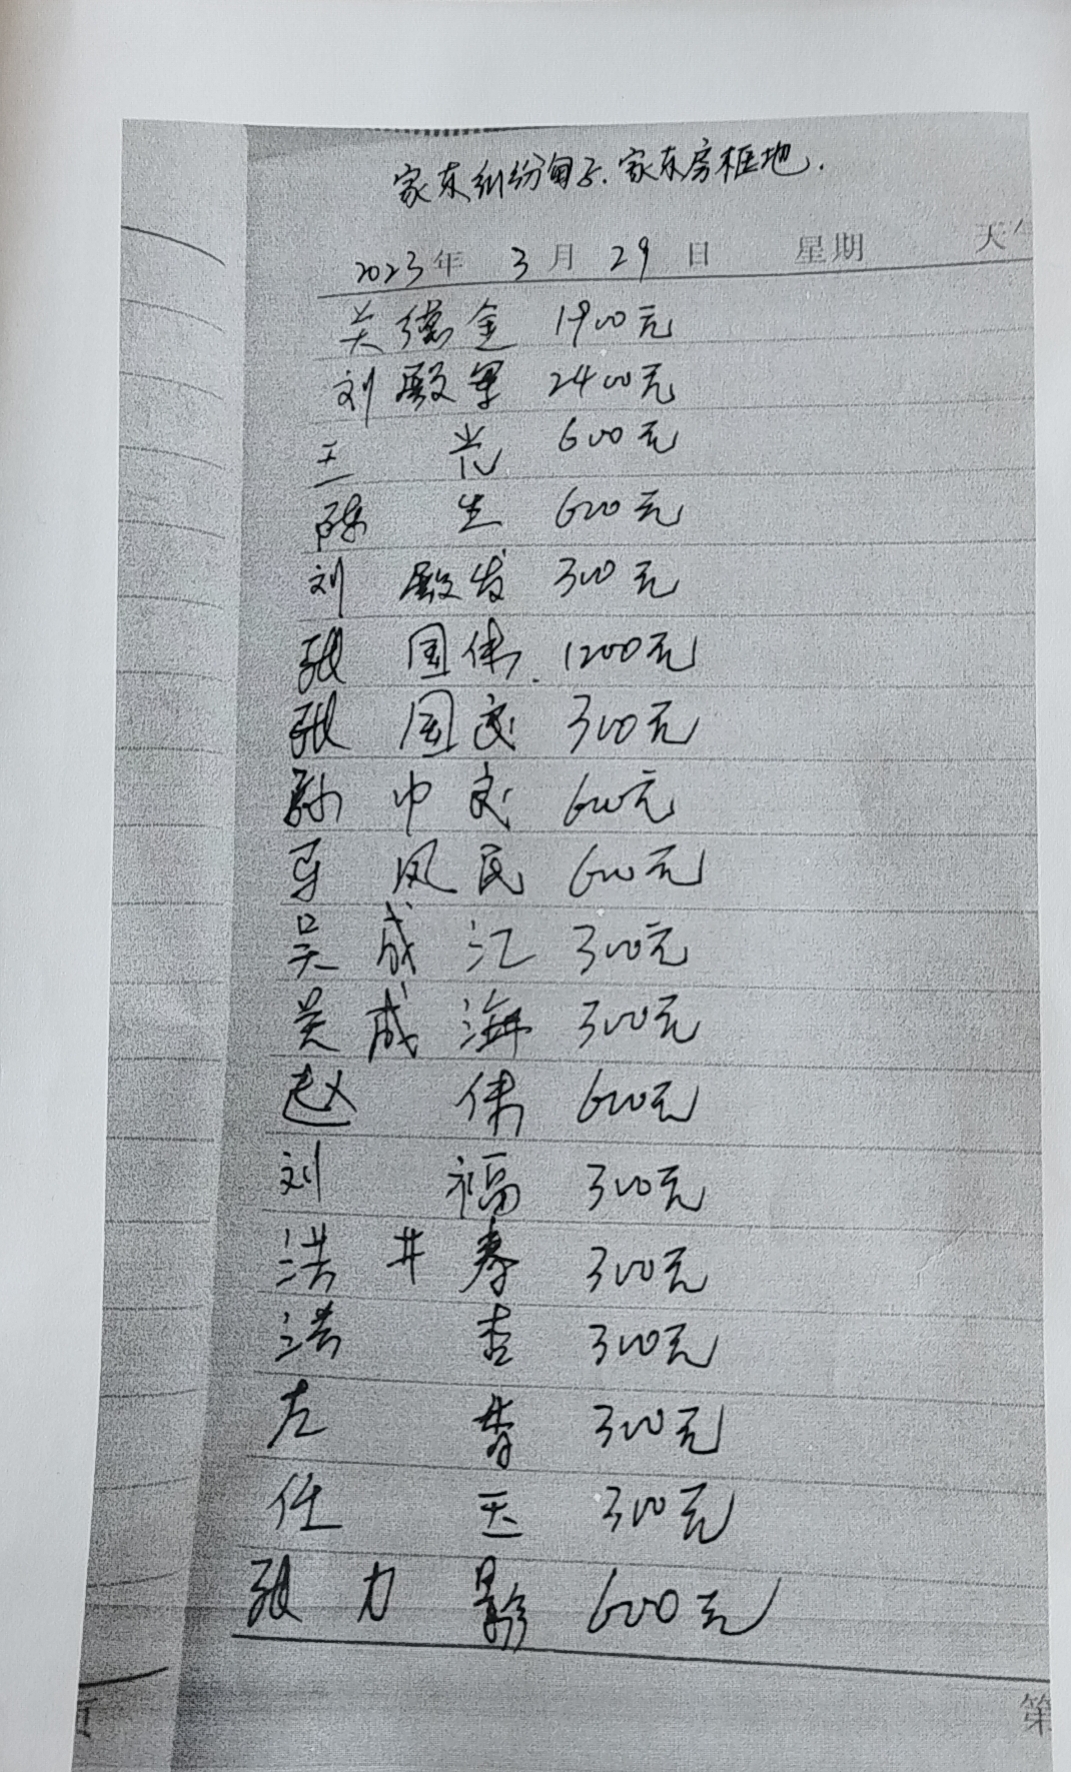 家东纠纷甸子.家东房框地.
2023年 3月 29日 星期 天
关德金 1900元
刘殿军 2400元
王 光 600元
陈 生 600元
刘殿发 300元
张国伟. 1200元
张国文 300元
孙中文 600元
马凤民 600元
吴成江 300元
吴成海 300元
赵 伟 600元
刘 福 300元
洪井春 300元
洪 杰 300元
左 300元
任 300元
张力影 600元
第